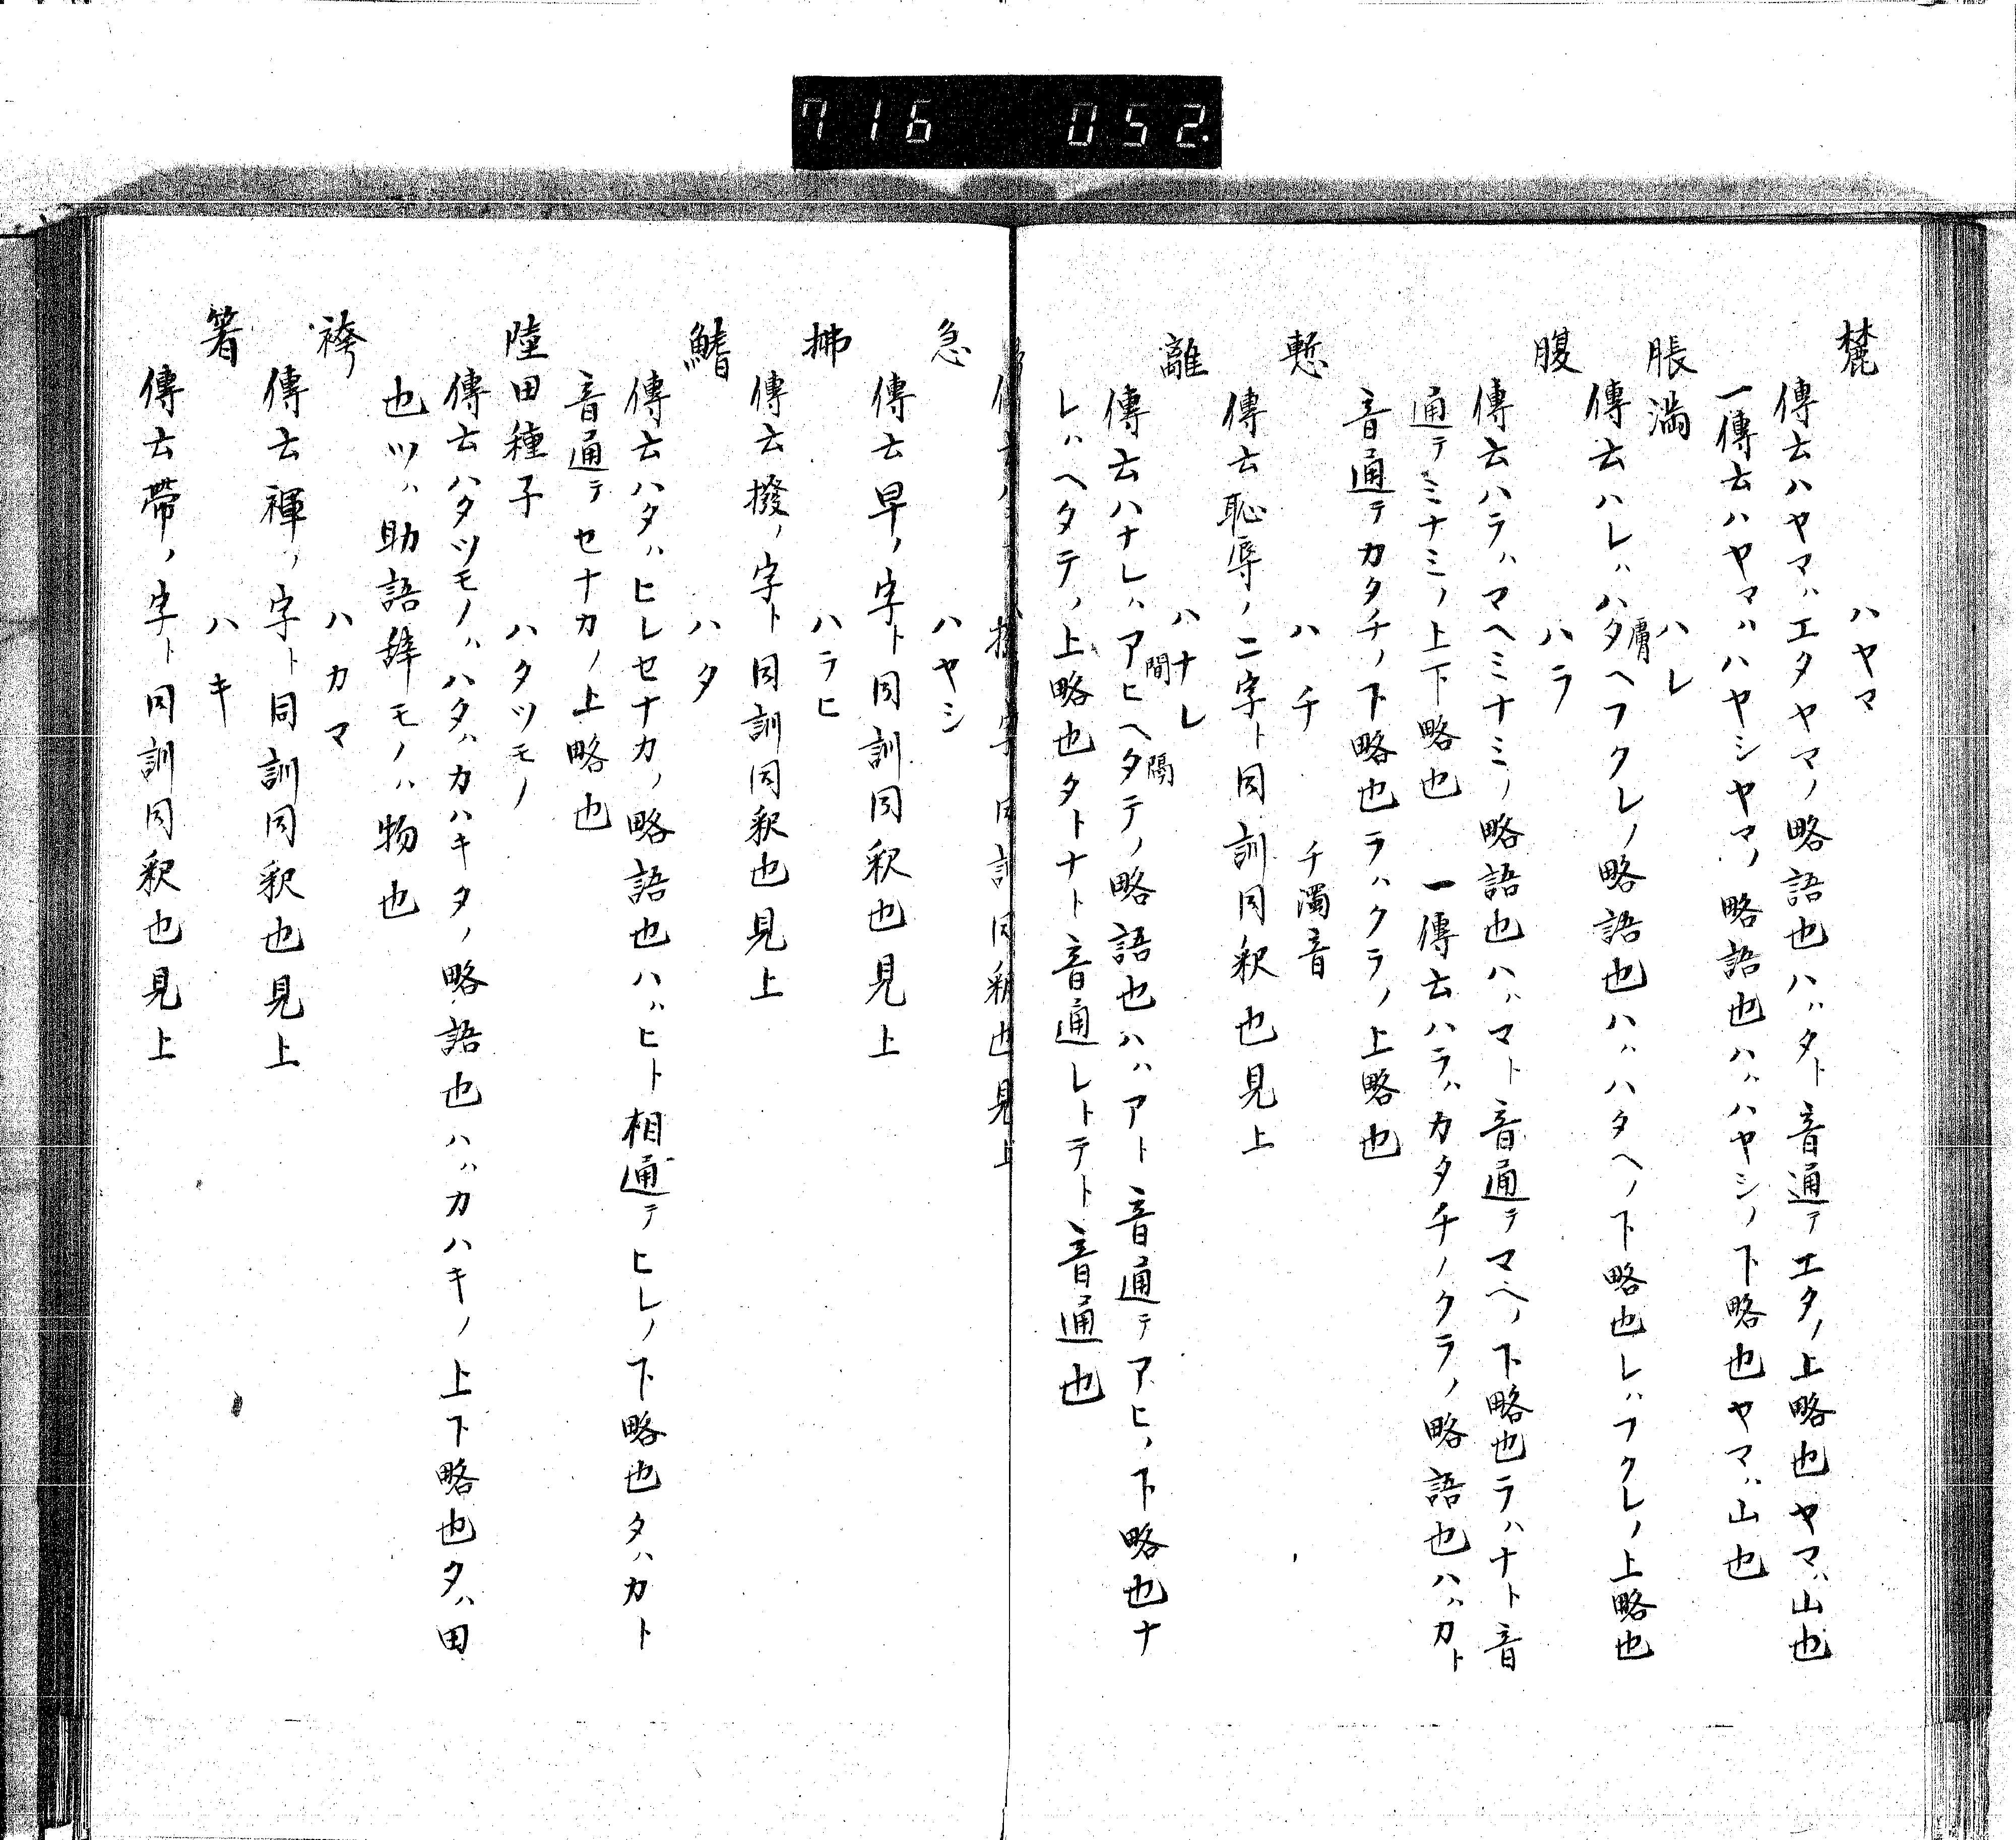 716 052
麓 ハヤマ
傳云ハヤマハエタヤマノ略語也ハハタト音通テエタノ上略也ヤマハ山也
一傳云ハヤマハハヤシヤマノ略語也ハハハヤシノ下略也ヤマハ山也
脹満 ハレ
傳云ハレハハタヘフクレノ略語也ハハハタヘノ下略也レハフクレノ上略也
膚
腹 ハラ
傳云ハラハマヘミナミノ略語也ハハマト音通テマヘノ下略也ラハナト音
通テミナミノ上下略也 一傳云ハラハカタチノクラノ略語也ハハカト
音通テカタチノ下略也ラハクラノ上略也
慙 ハチ チ濁音
傳云恥辱ノ二字ト同訓同釈也見上
離 ハナレ
間 隔
傳云ハナレハアヒヘタテノ略語也ハハアト音通テアヒノ下略也ナ
レハヘタテノ上略也タトナト音通レトテト音通也
同訓同釈也見上
急 ハヤシ
傳云早ノ字ト同訓同釈也見上
拂 ハラヒ
傳云撥ノ字ト同訓同釈也見上
鰭 ハタ
傳云ハタハヒレセナカノ略語也ハハヒト相通テヒレノ下略也タハカト
音通テセナカノ上略也
陸田種子 ハタツモノ
傳云ハタツモノハハタハカハキタノ略語也ハハカハキノ上下略也タハ田
也ツハ助語辞モノハ物也
袴 ハカマ
傳云褌ノ字ト同訓同釈也見上
箸 ハキ
傳云帶ノ字ト同訓同釈也見上